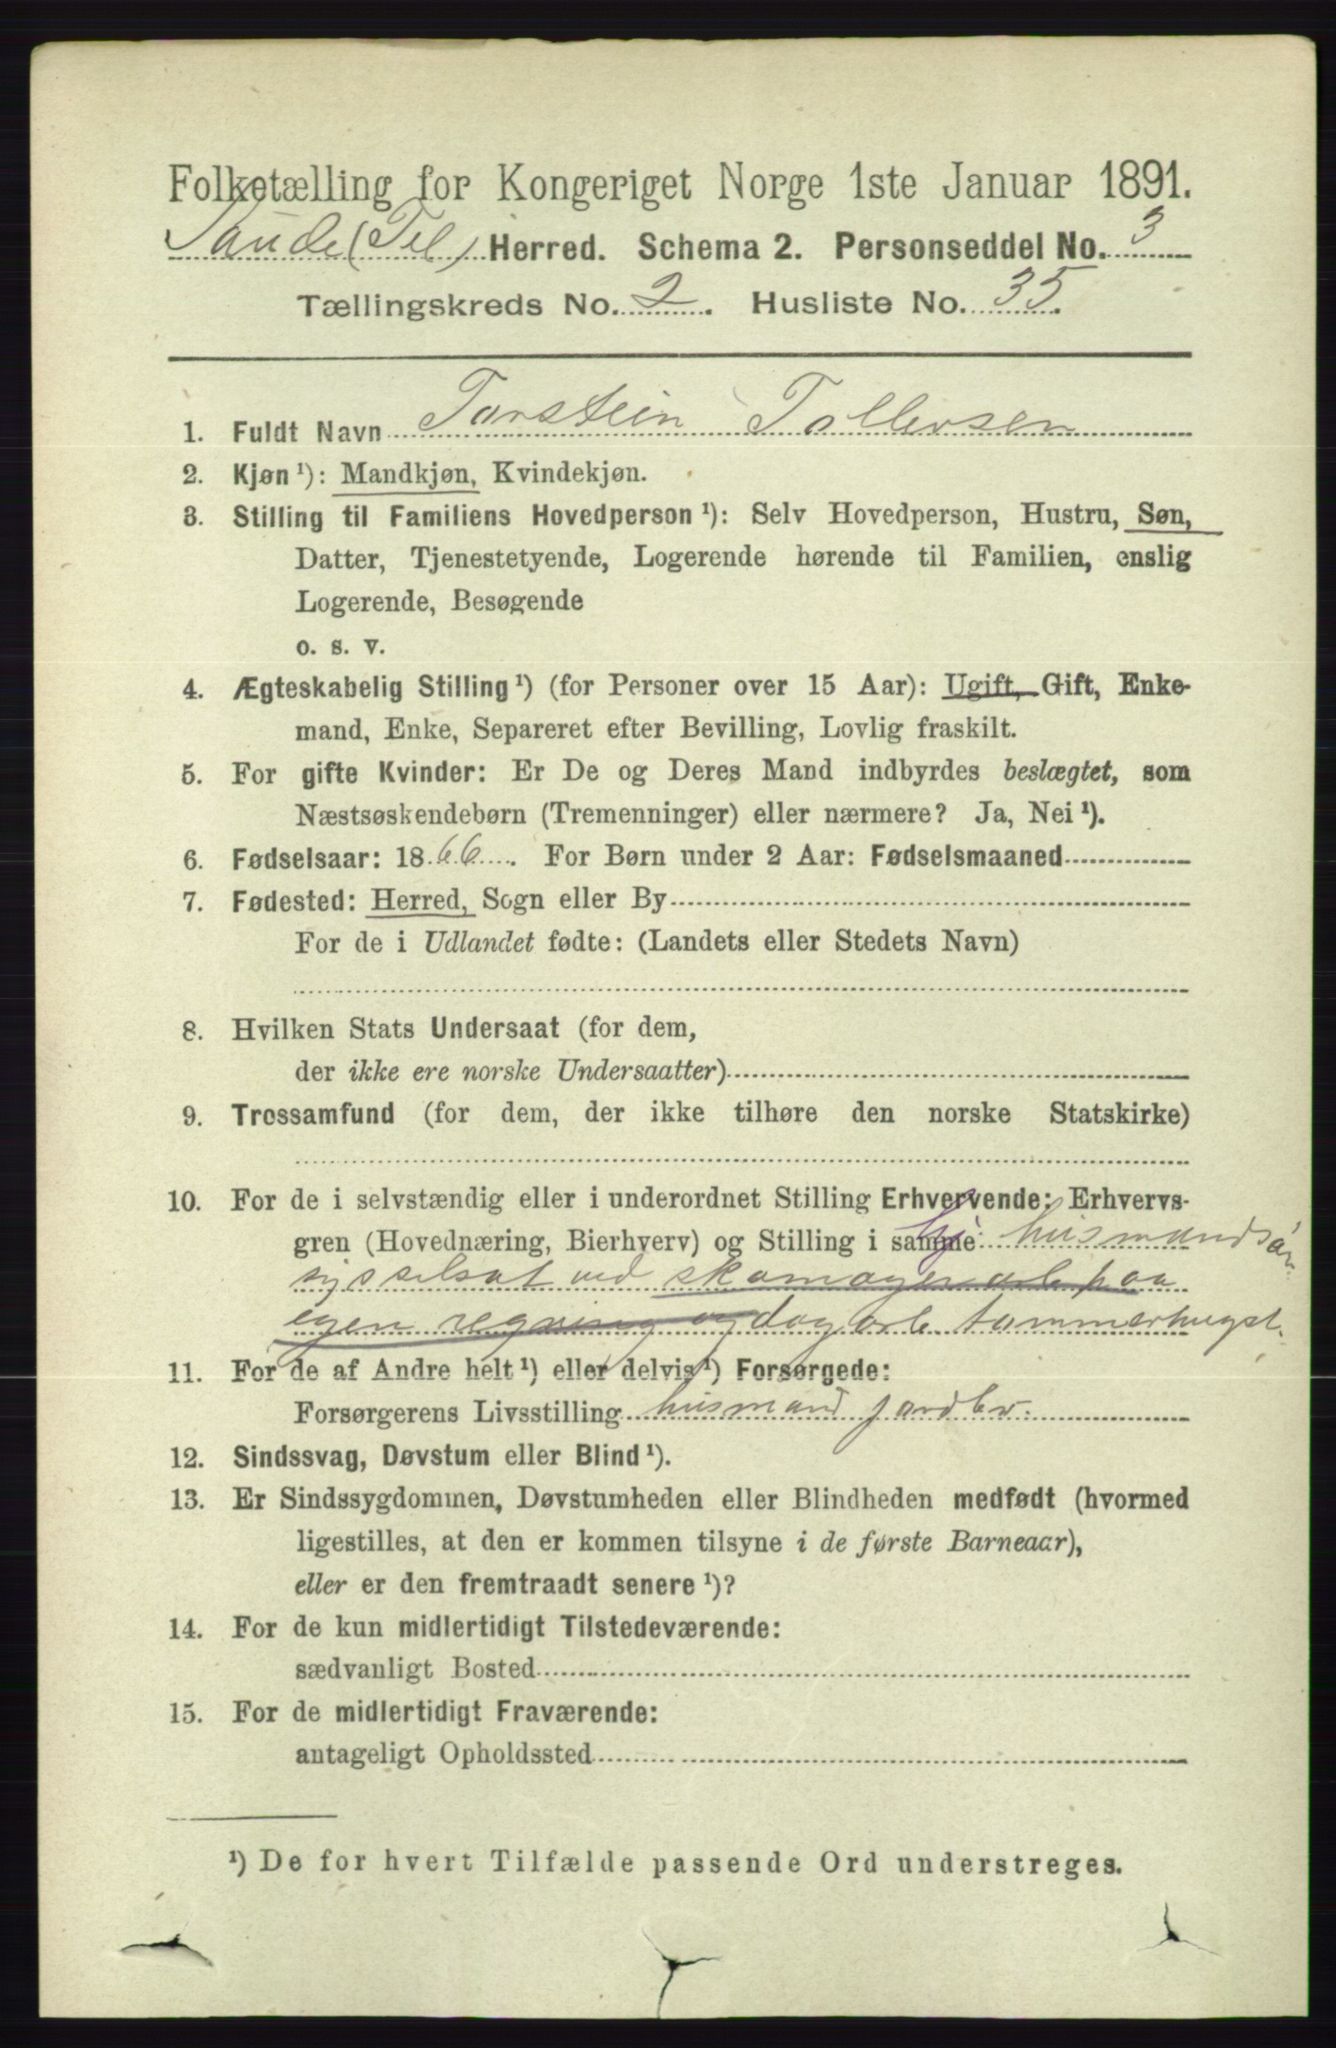 Folketælling for Kongeriget Norge 1ste Januar 1891.
Saude (Tel) Herred. Schema 2. Personseddel No. 3
Tællingskreds No. 2. Husliste No. 35.
1. Fuldt Navn Torstein Tollevsen
2. Kjøn¹): Mandkjøn, Kvindekjøn.
3. Stilling til Familiens Hovedperson¹): Selv Hovedperson, Hustru, Søn,
Datter, Tjenestetyende, Logerende hørende til Familien, enslig
Logerende, Besøgende
o. s. v.
4. Ægteskabelig Stilling¹) (for Personer over 15 Aar): Ugift, Gift, Enke-
mand, Enke, Separeret efter Bevilling, Lovlig fraskilt.
5. For gifte Kvinder: Er De og Deres Mand indbyrdes beslægtet, som
Næstsøskendebørn (Tremenninger) eller nærmere? Ja, Nei¹).
6. Fødselsaar: 1866. For Børn under 2 Aar: Fødselsmaaned
7. Fødested: Herred, Sogn eller By
For de i Udlandet fødte: (Landets eller Stedets Navn)
8. Hvilken Stats Undersaat (for dem,
der ikke ere norske Undersaatter)
9. Trossamfund (for dem, der ikke tilhøre den norske Statskirke)
10. For de i selvstændig eller i underordnet Stilling Erhvervende: Erhvervs-
gren (Hovednæring, Bierhverv) og Stilling i samme: husmandsøn
sysselsat ved skomagerarb paa
egen regning og dagarb. tømmerhugst.
11. For de af Andre helt¹) eller delvis¹) Forsørgede:
Forsørgerens Livsstilling husmand jordbr.
12. Sindssvag, Døvstum eller Blind¹).
13. Er Sindssygdommen, Døvstumheden eller Blindheden medfødt (hvormed
ligestilles, at den er kommen tilsyne i de første Barneaar),
eller er den fremtraadt senere¹)?
14. For de kun midlertidigt Tilstedeværende:
sædvanligt Bosted
15. For de midlertidigt Fraværende:
antageligt Opholdssted
¹) De for hvert Tilfælde passende Ord understreges.